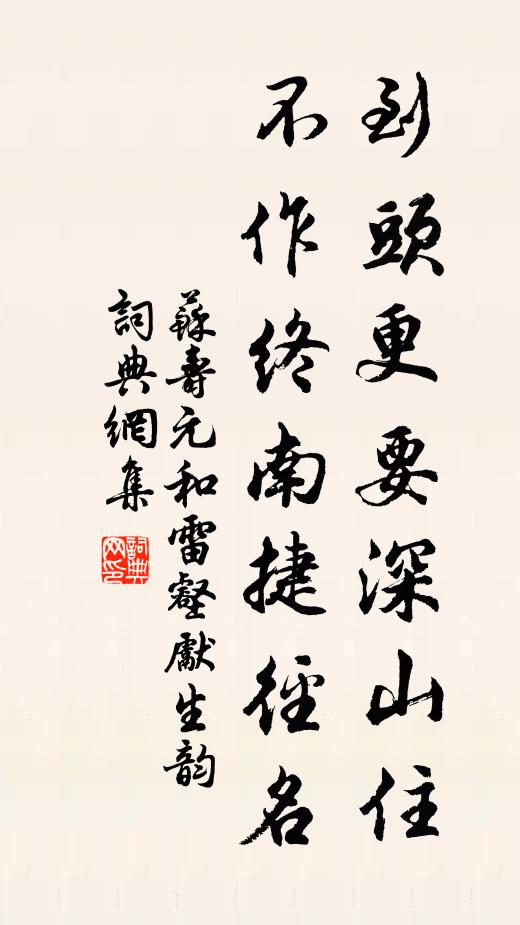 到頭更要深山住
不作終南捷徑名
蘇壽元和雷壑獻生韵
詞典網集
詞典網印